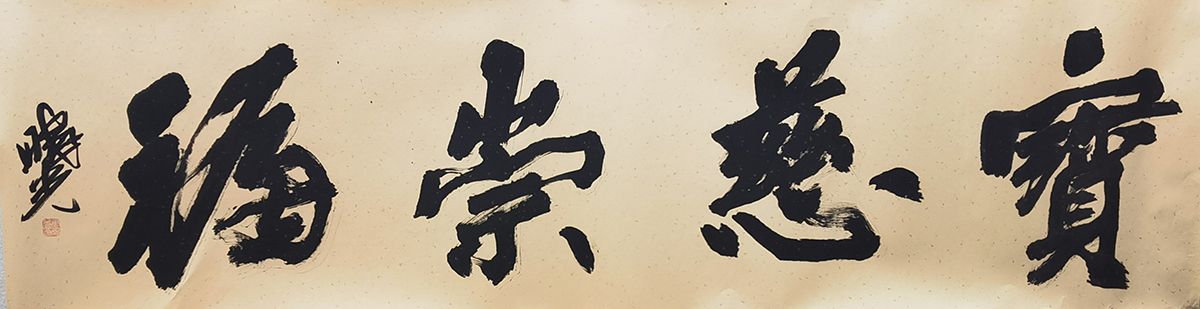 寶慈崇福